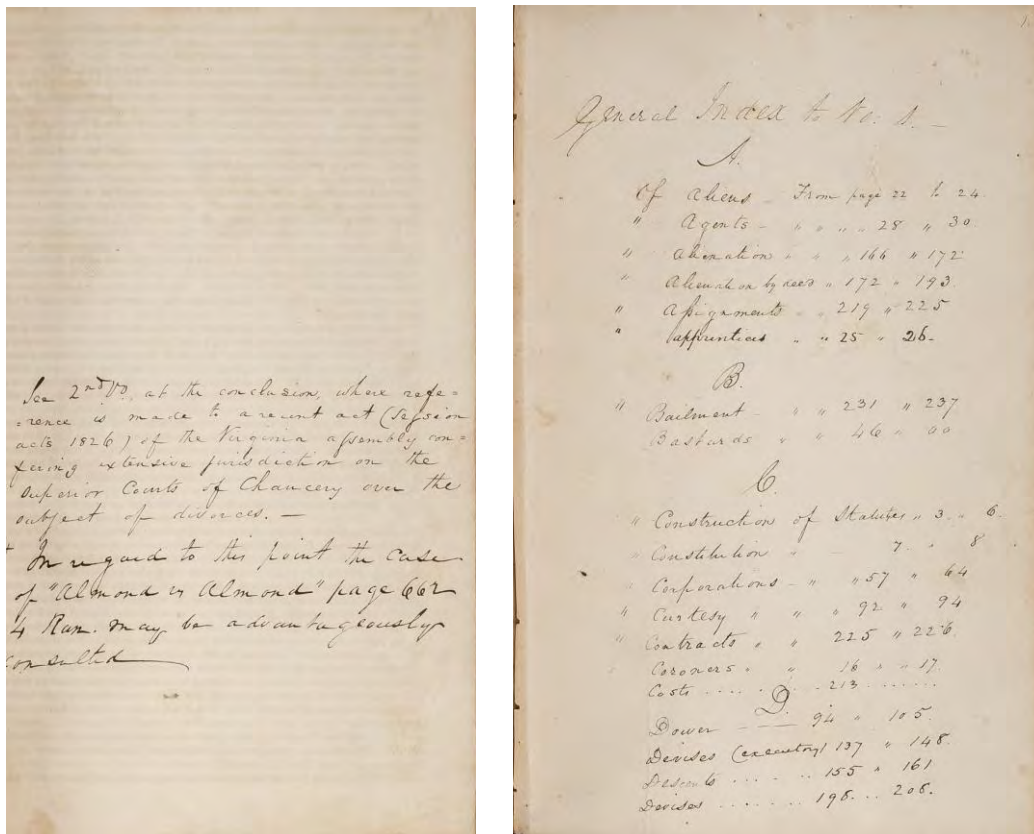 See 2nd Vo, at the conclusion, where refe=
=rence is made to a recent act (Session
acts 1826) of the Virginia assembly con=
fering extensive jurisdiction on the
Superior Courts of Chancery over the
subject of divorces. —
In regard to this point the case
of "Almond vs Almond" page 662
4 Ran. may be advantageously
consulted
General Index to No: 1. —
A.
Of Aliens - From page 22 to 24
" Agents - " " " " 28 " 30.
" Alienation " " " 166 " 172
" Alienation by deed " 172 " 193.
" Assignments " " 219 " 225
" apprentices " " 25 " 26.
B.
" Bailment - " " 231 " 237
Bastards " " 46 "
C.
" Construction of Statutes " 3. " 6.
" Constitution " - 7. " 8
" Corporations - " " 57 " 64
" Curtesy " " " 92 " 94
" Contracts " " 225 " 226.
" Coroners " " 16 " " 17.
Costs .... 213 ......
D.
Dower —— 94 " 105.
Devises (executory) 137 " 148.
Descents .... 155 " 161
Devises ...... 198. ... 208.